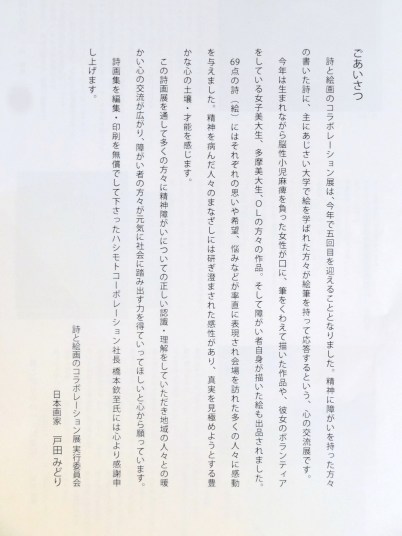 ごあいさつ
詩と絵画のコラボレーション展は、今年で五回目を迎えることとなりました。精神に障がいを持った方々
の書いた詩に、主にあじさい大学で絵を学ばれた方々が絵筆を持って応答するという、心の交流展です。
今年は生まれながら脳性小児麻痺を負った女性が口に、筆をくわえて描いた作品や、彼女のボランティア
をしている女子美大生、多摩美大生、OLの方々の作品。そして障がい者自身が描いた絵も出品されました。
69点の詩（絵）にはそれぞれの思いや希望、悩みなどが率直に表現され会場を訪れた多くの人々に感動
を与えました。精神を病んだ人々のまなざしには研ぎ澄まされた感性があり、真実を見極めようとする豊
かな心の土壌・才能を感じます。
この詩画展を通して多くの方々に精神障がいについての正しい認識・理解をしていただき地域の人々との暖
かい心の交流が広がり、障がい者の方々が元気に社会に踏み出す力を得ていってほしいと心から願っています。
詩画集を編集・印刷を無償でして下さったハシモトコーポレーション社長 橋本欽至氏には心より感謝申
し上げます。
詩と絵画のコラボレーション展 実行委員会
日本画家 戸田みどり